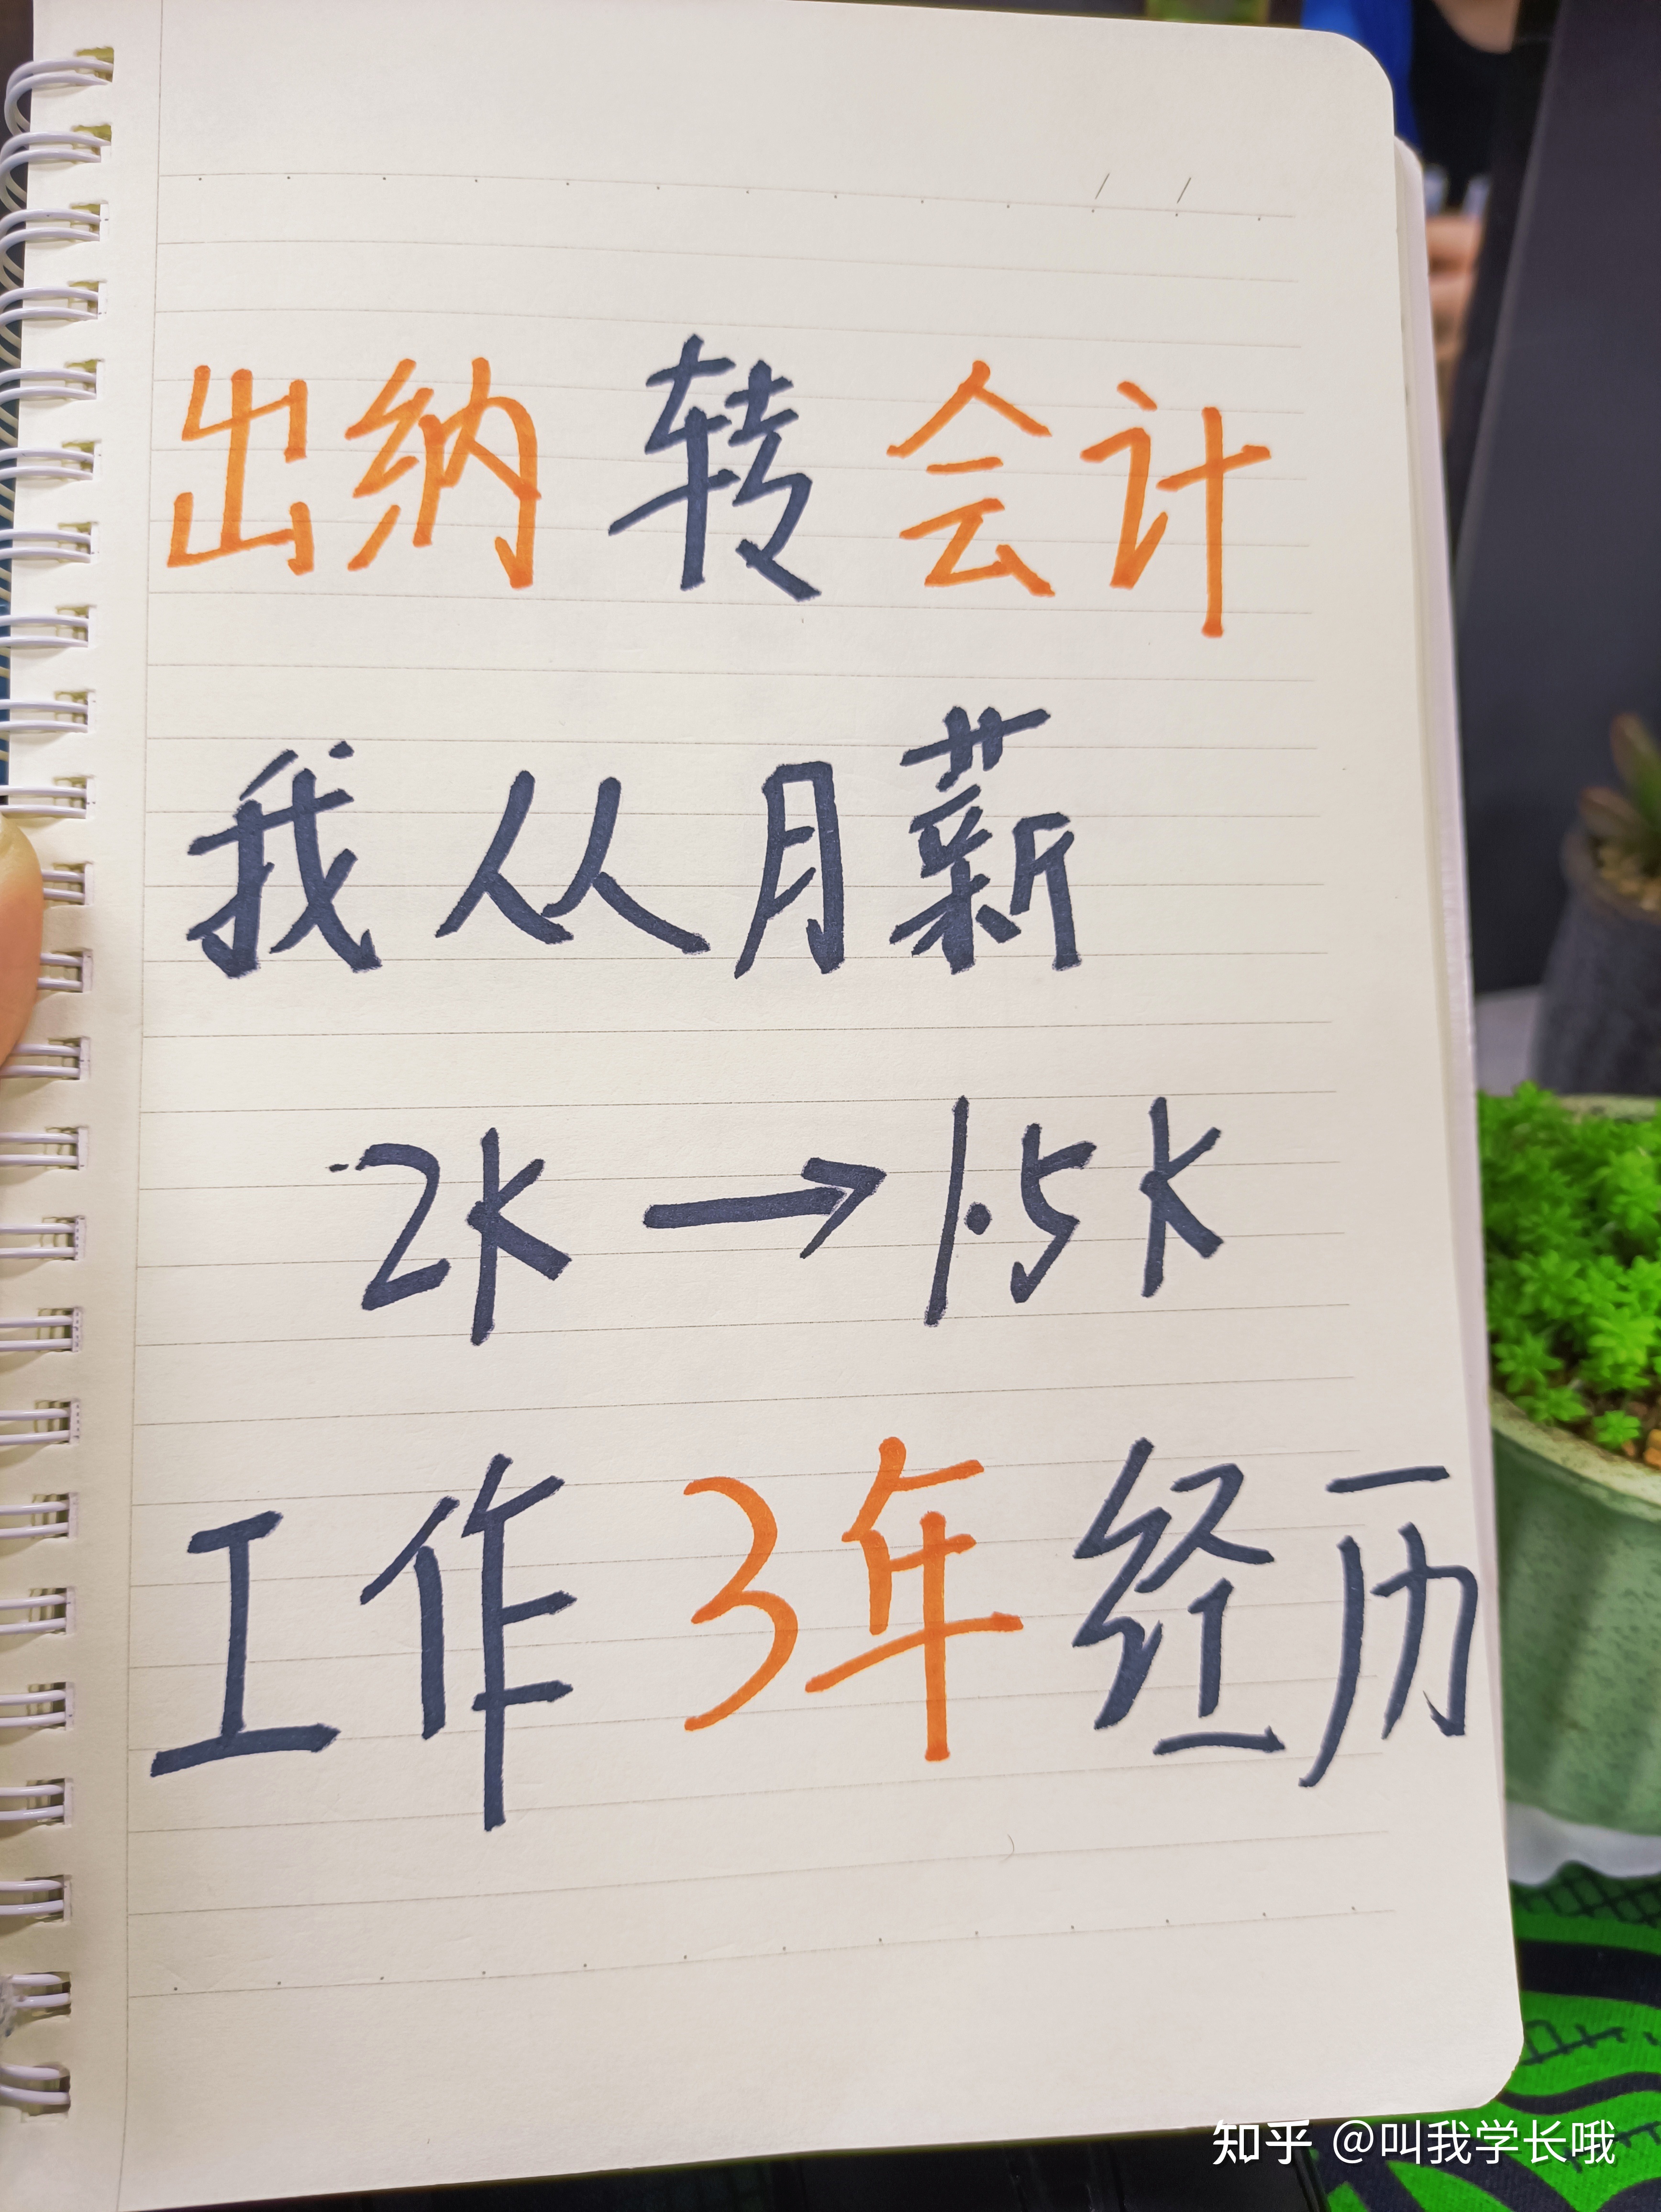 出纳 转 会计
我从月薪
2k → 1.5k
工作 3年 经历
知乎 @叫我学长哦